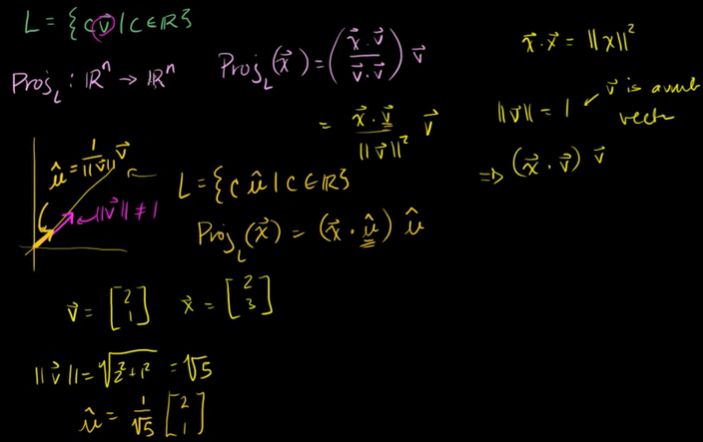 L = {c v⃗ | c ∈ ℝ}
Proj_L : ℝⁿ → ℝⁿ
Proj_L(x⃗) = (x⃗ · v⃗ / v⃗ · v⃗) v⃗
= x⃗ · v⃗ / ||v⃗||² v⃗
x⃗ · x⃗ = ||x||²
||v⃗|| = 1 ← v⃗ is a unit
vector
⇒ (x⃗ · v⃗) v⃗
û = 1/||v⃗|| v⃗
||v⃗|| ≠ 1
L = {c û | c ∈ ℝ}
Proj_L(x⃗) = (x⃗ · û) û
v⃗ = [2 1] x⃗ = [2 3]
||v⃗|| = √(2² + 1²) = √5
û = 1/√5 [2 1]